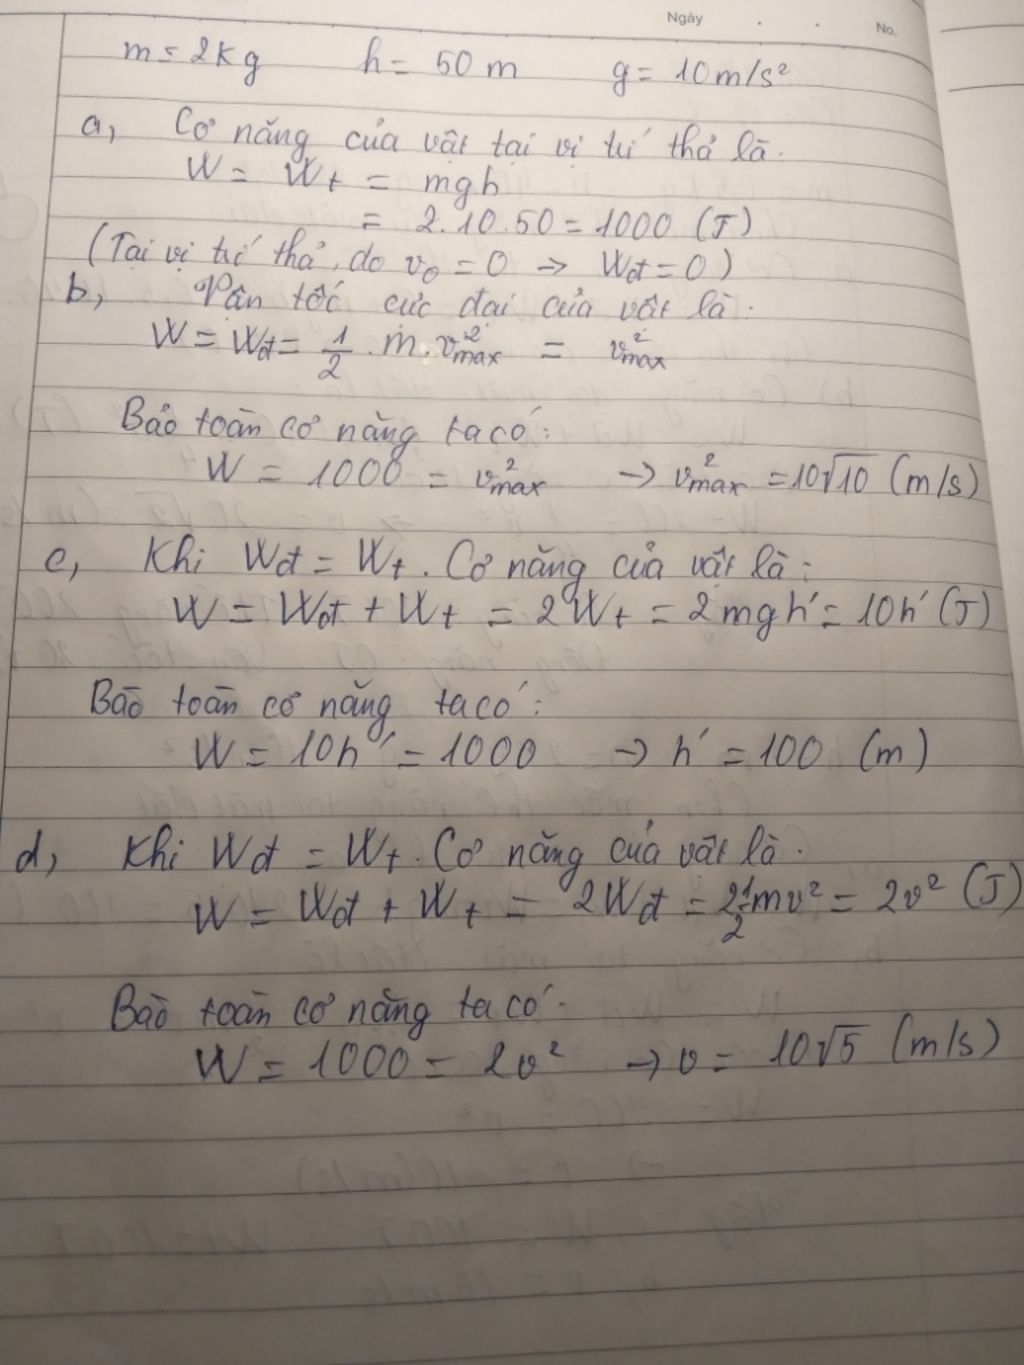 Ngày . . No.
m = 2kg h = 50 m g = 10m/s²
a, Cơ năng của vật tại vị trí thả là:
W = Wt = mgh
= 2.10.50 = 1000 (J)
(Tại vị trí thả, do v₀ = 0 → Wđ = 0)
b, Vận tốc cực đại của vật là:
W = Wđ = 1/2 . m . v²max = v²max
Bảo toàn cơ năng ta có:
W = 1000 = v²max → v²max = 10√10 (m/s)
c, Khi Wđ = Wt. Cơ năng của vật là:
W = Wđ + Wt = 2Wt = 2mgh' = 10h' (J)
Bảo toàn cơ năng ta có:
W = 10h' = 1000 → h' = 100 (m)
d, Khi Wđ = Wt. Cơ năng của vật là:
W = Wđ + Wt = 2Wđ = 2 1/2 mv² = 2v² (J)
Bảo toàn cơ năng ta có:
W = 1000 = 2v² → v = 10√5 (m/s)